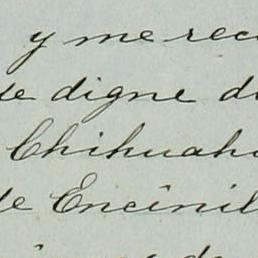 y me rec
se digne d
Chihuahu
de Encinil
de